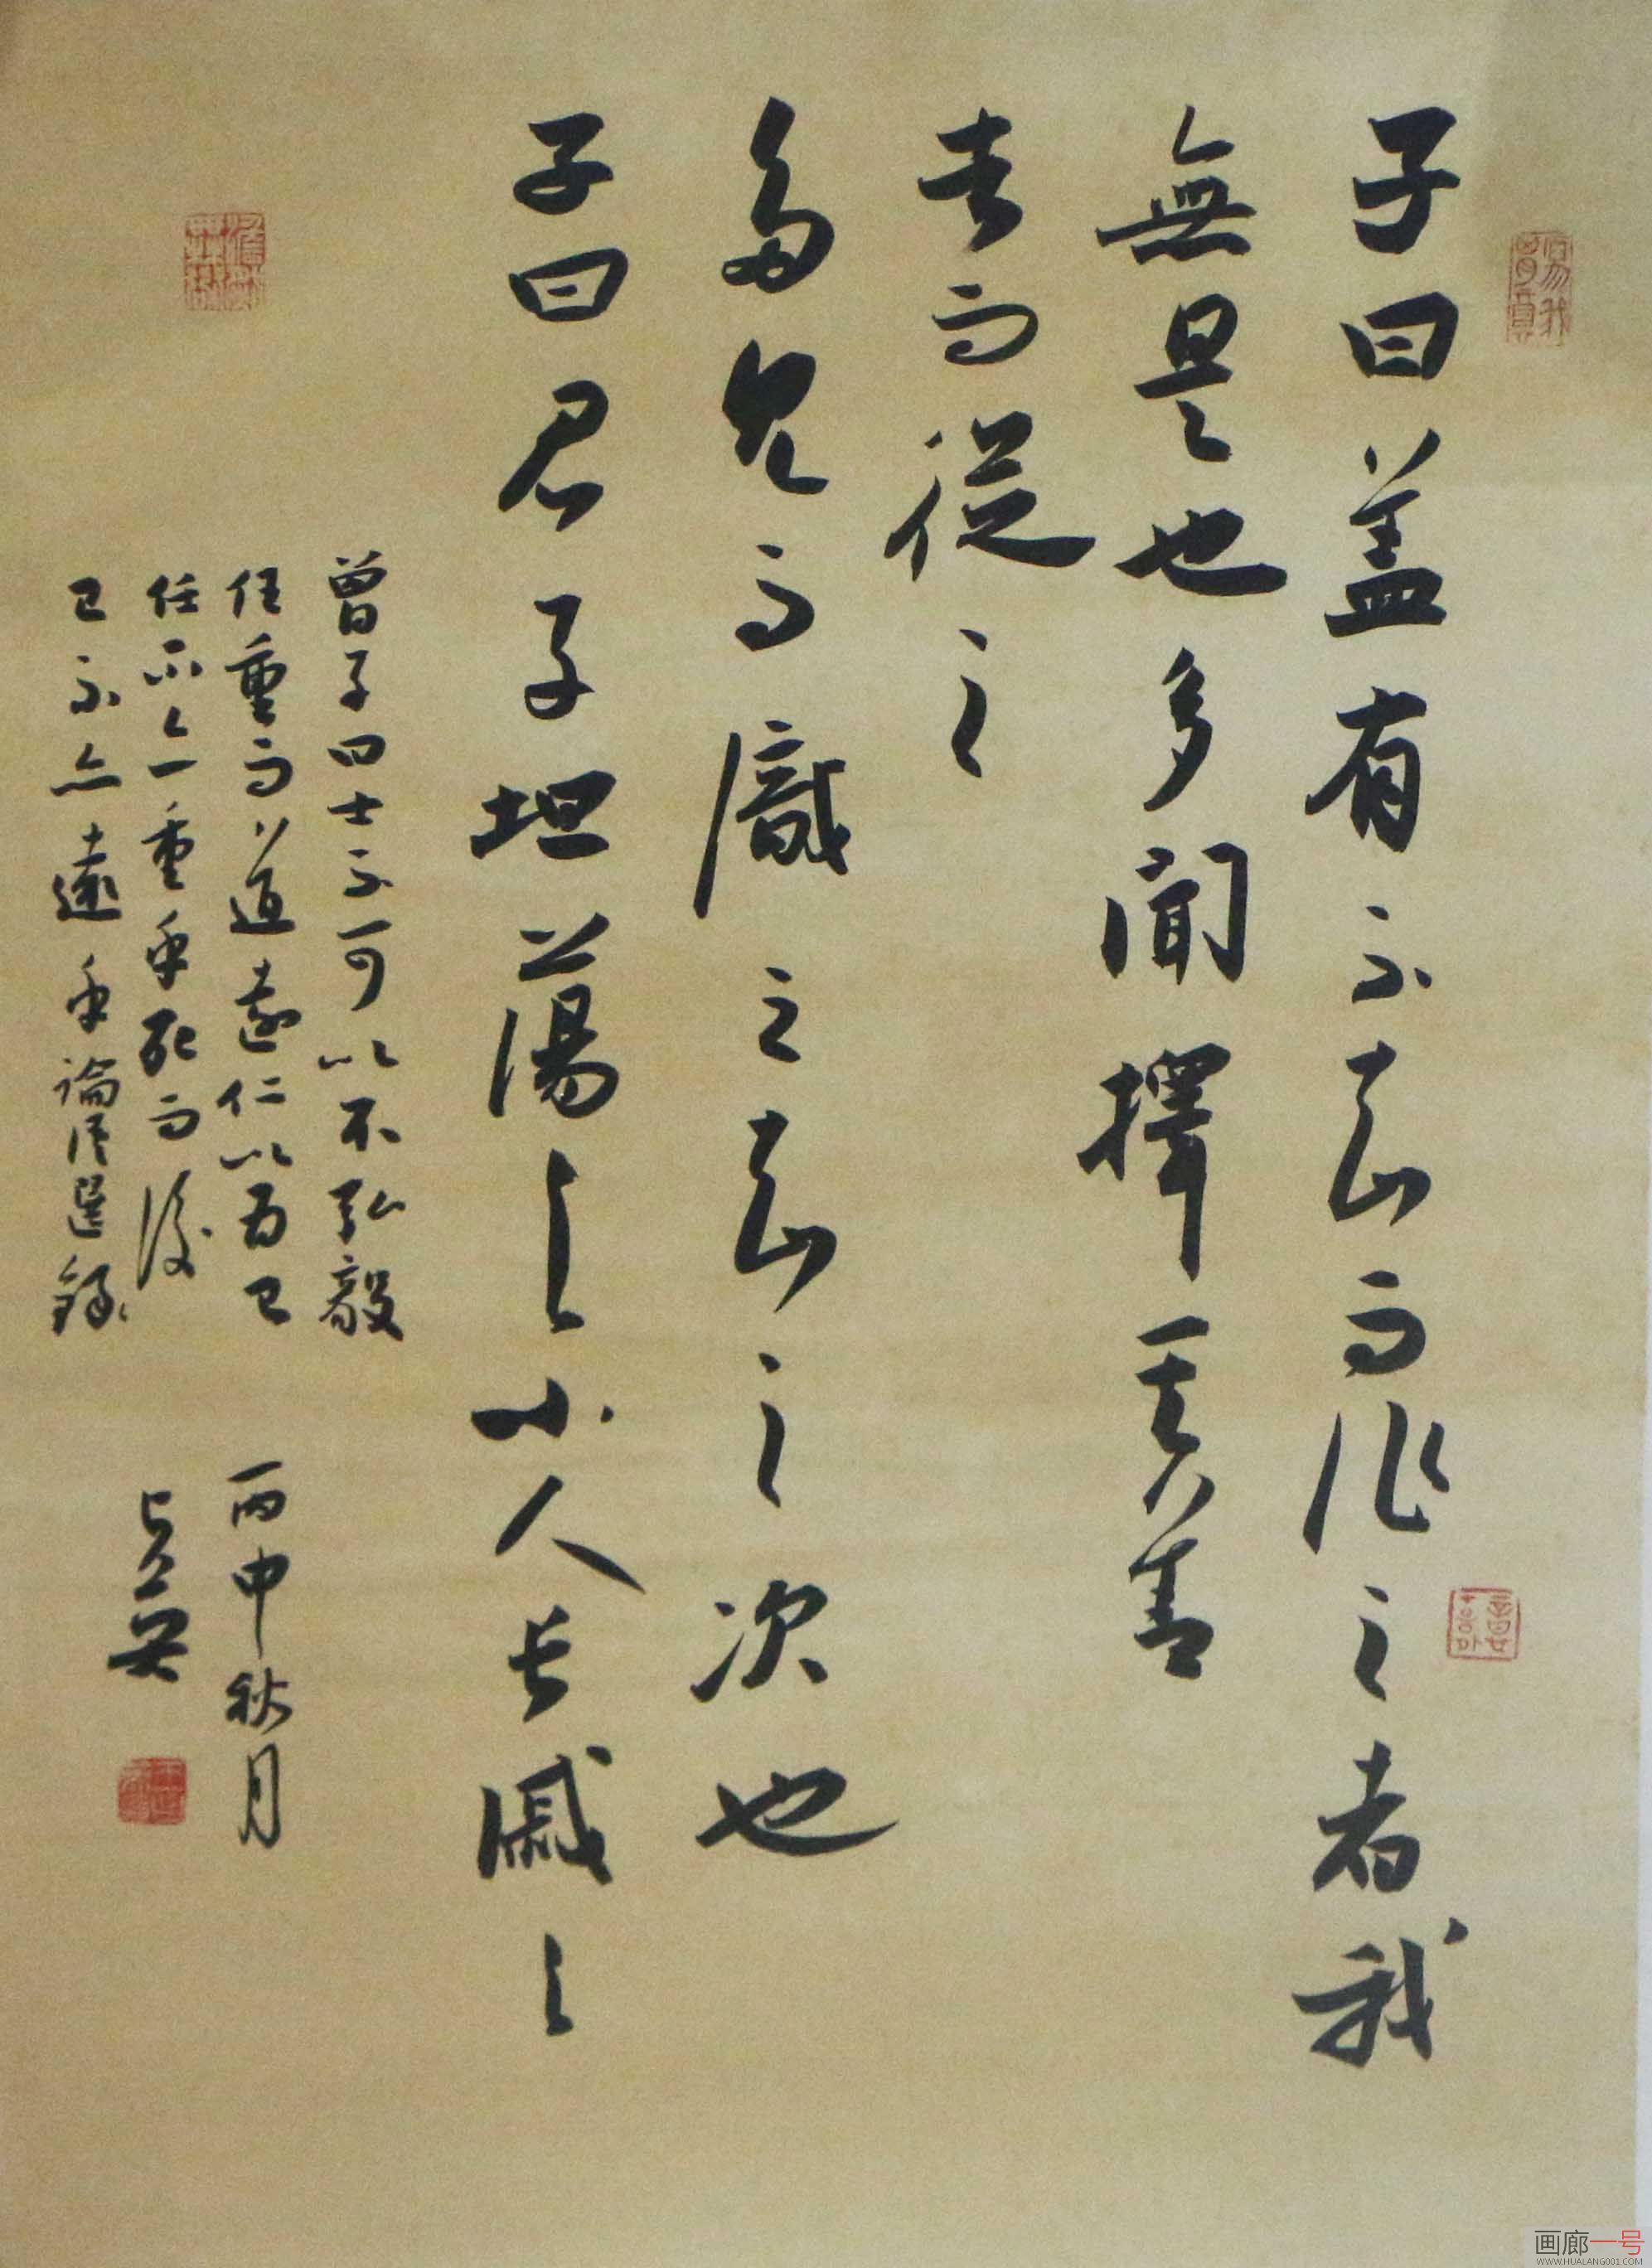 子曰盖有不知而作之者我
無是也多聞擇其善
者而從之
多見而識之知之次也
子曰君子坦蕩之小人長戚之
曾子曰士不可以不弘毅
任重而道遠仁以為己
任不亦重乎死而後
已不亦遠乎論語選錄
丙申秋月
画廊一号
WWW.HUALANG001.COM